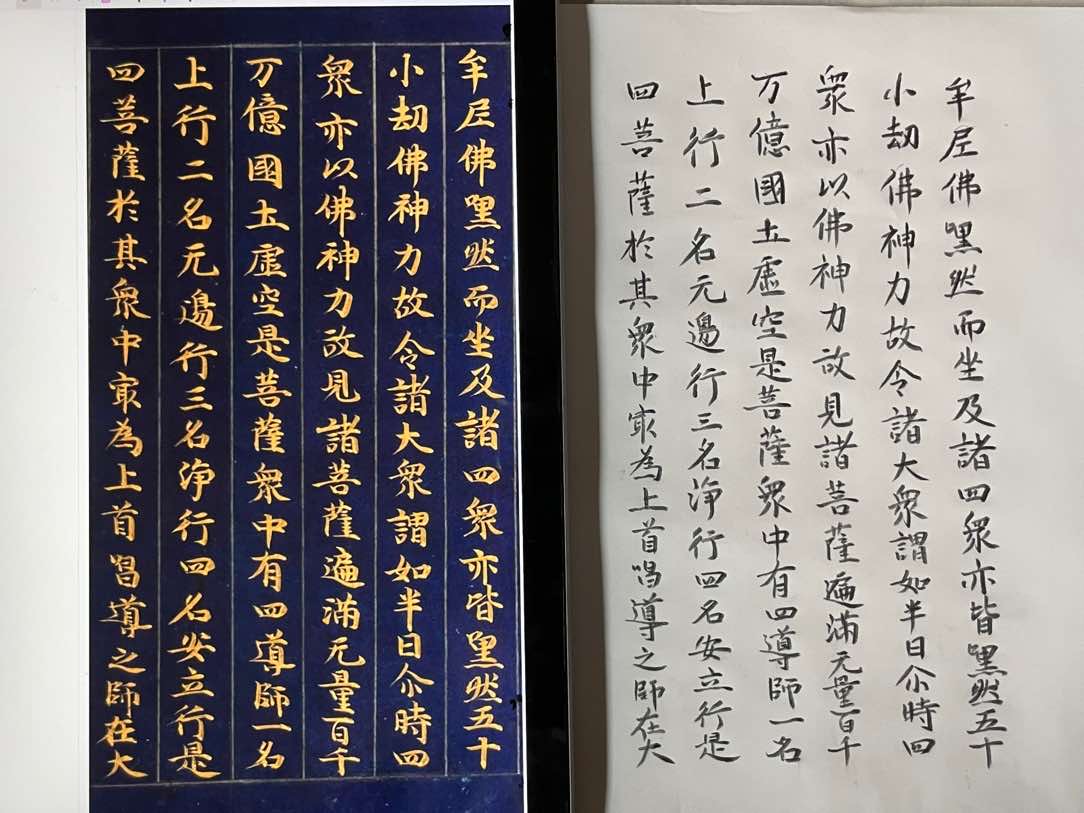 牟尼佛嘿然而坐及諸四衆亦皆嘿然五十
小劫佛神力故令諸大衆謂如半日尒時四
衆亦以佛神力故見諸菩薩遍滿无量百千
万億國土虛空是菩薩衆中有四導師一名
上行二名无邊行三名淨行四名安立行是
四菩薩於其衆中冣為上首唱導之師在大
牟尼佛嘿然而坐及諸四衆亦皆嘿然五十
小劫佛神力故令諸大衆謂如半日尒時四
衆亦以佛神力故見諸菩薩遍滿无量百千
万億國土虛空是菩薩衆中有四導師一名
上行二名无邊行三名淨行四名安立行是
四菩薩於其衆中冣為上首唱導之師在大